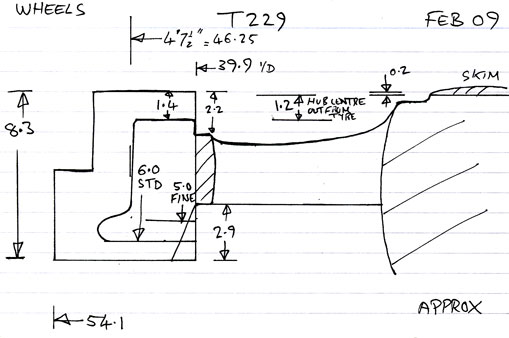 WHEELS
T229
FEB 09
4'7½" = 46.25
39.9 I/D
0.2
SKIM
1.4
2.2
1.2
HUB CENTRE
OUT FROM
TYRE
8.3
6.0
STD
5.0
FINE
2.9
54.1
APPROX